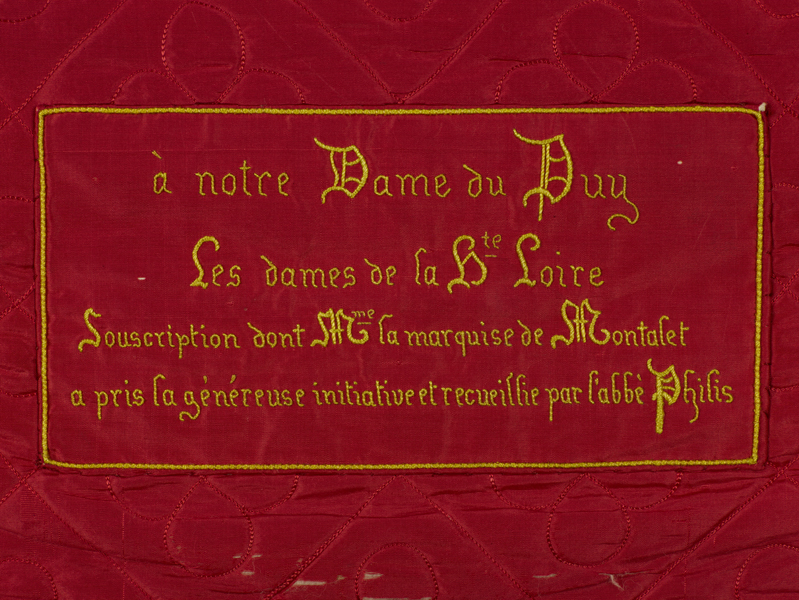 à notre Dame du Puy
Les dames de la Hte Loire
Souscription dont Mme la marquise de Montalet
a pris la généreuse initiative et recueillie par l'abbè Philis